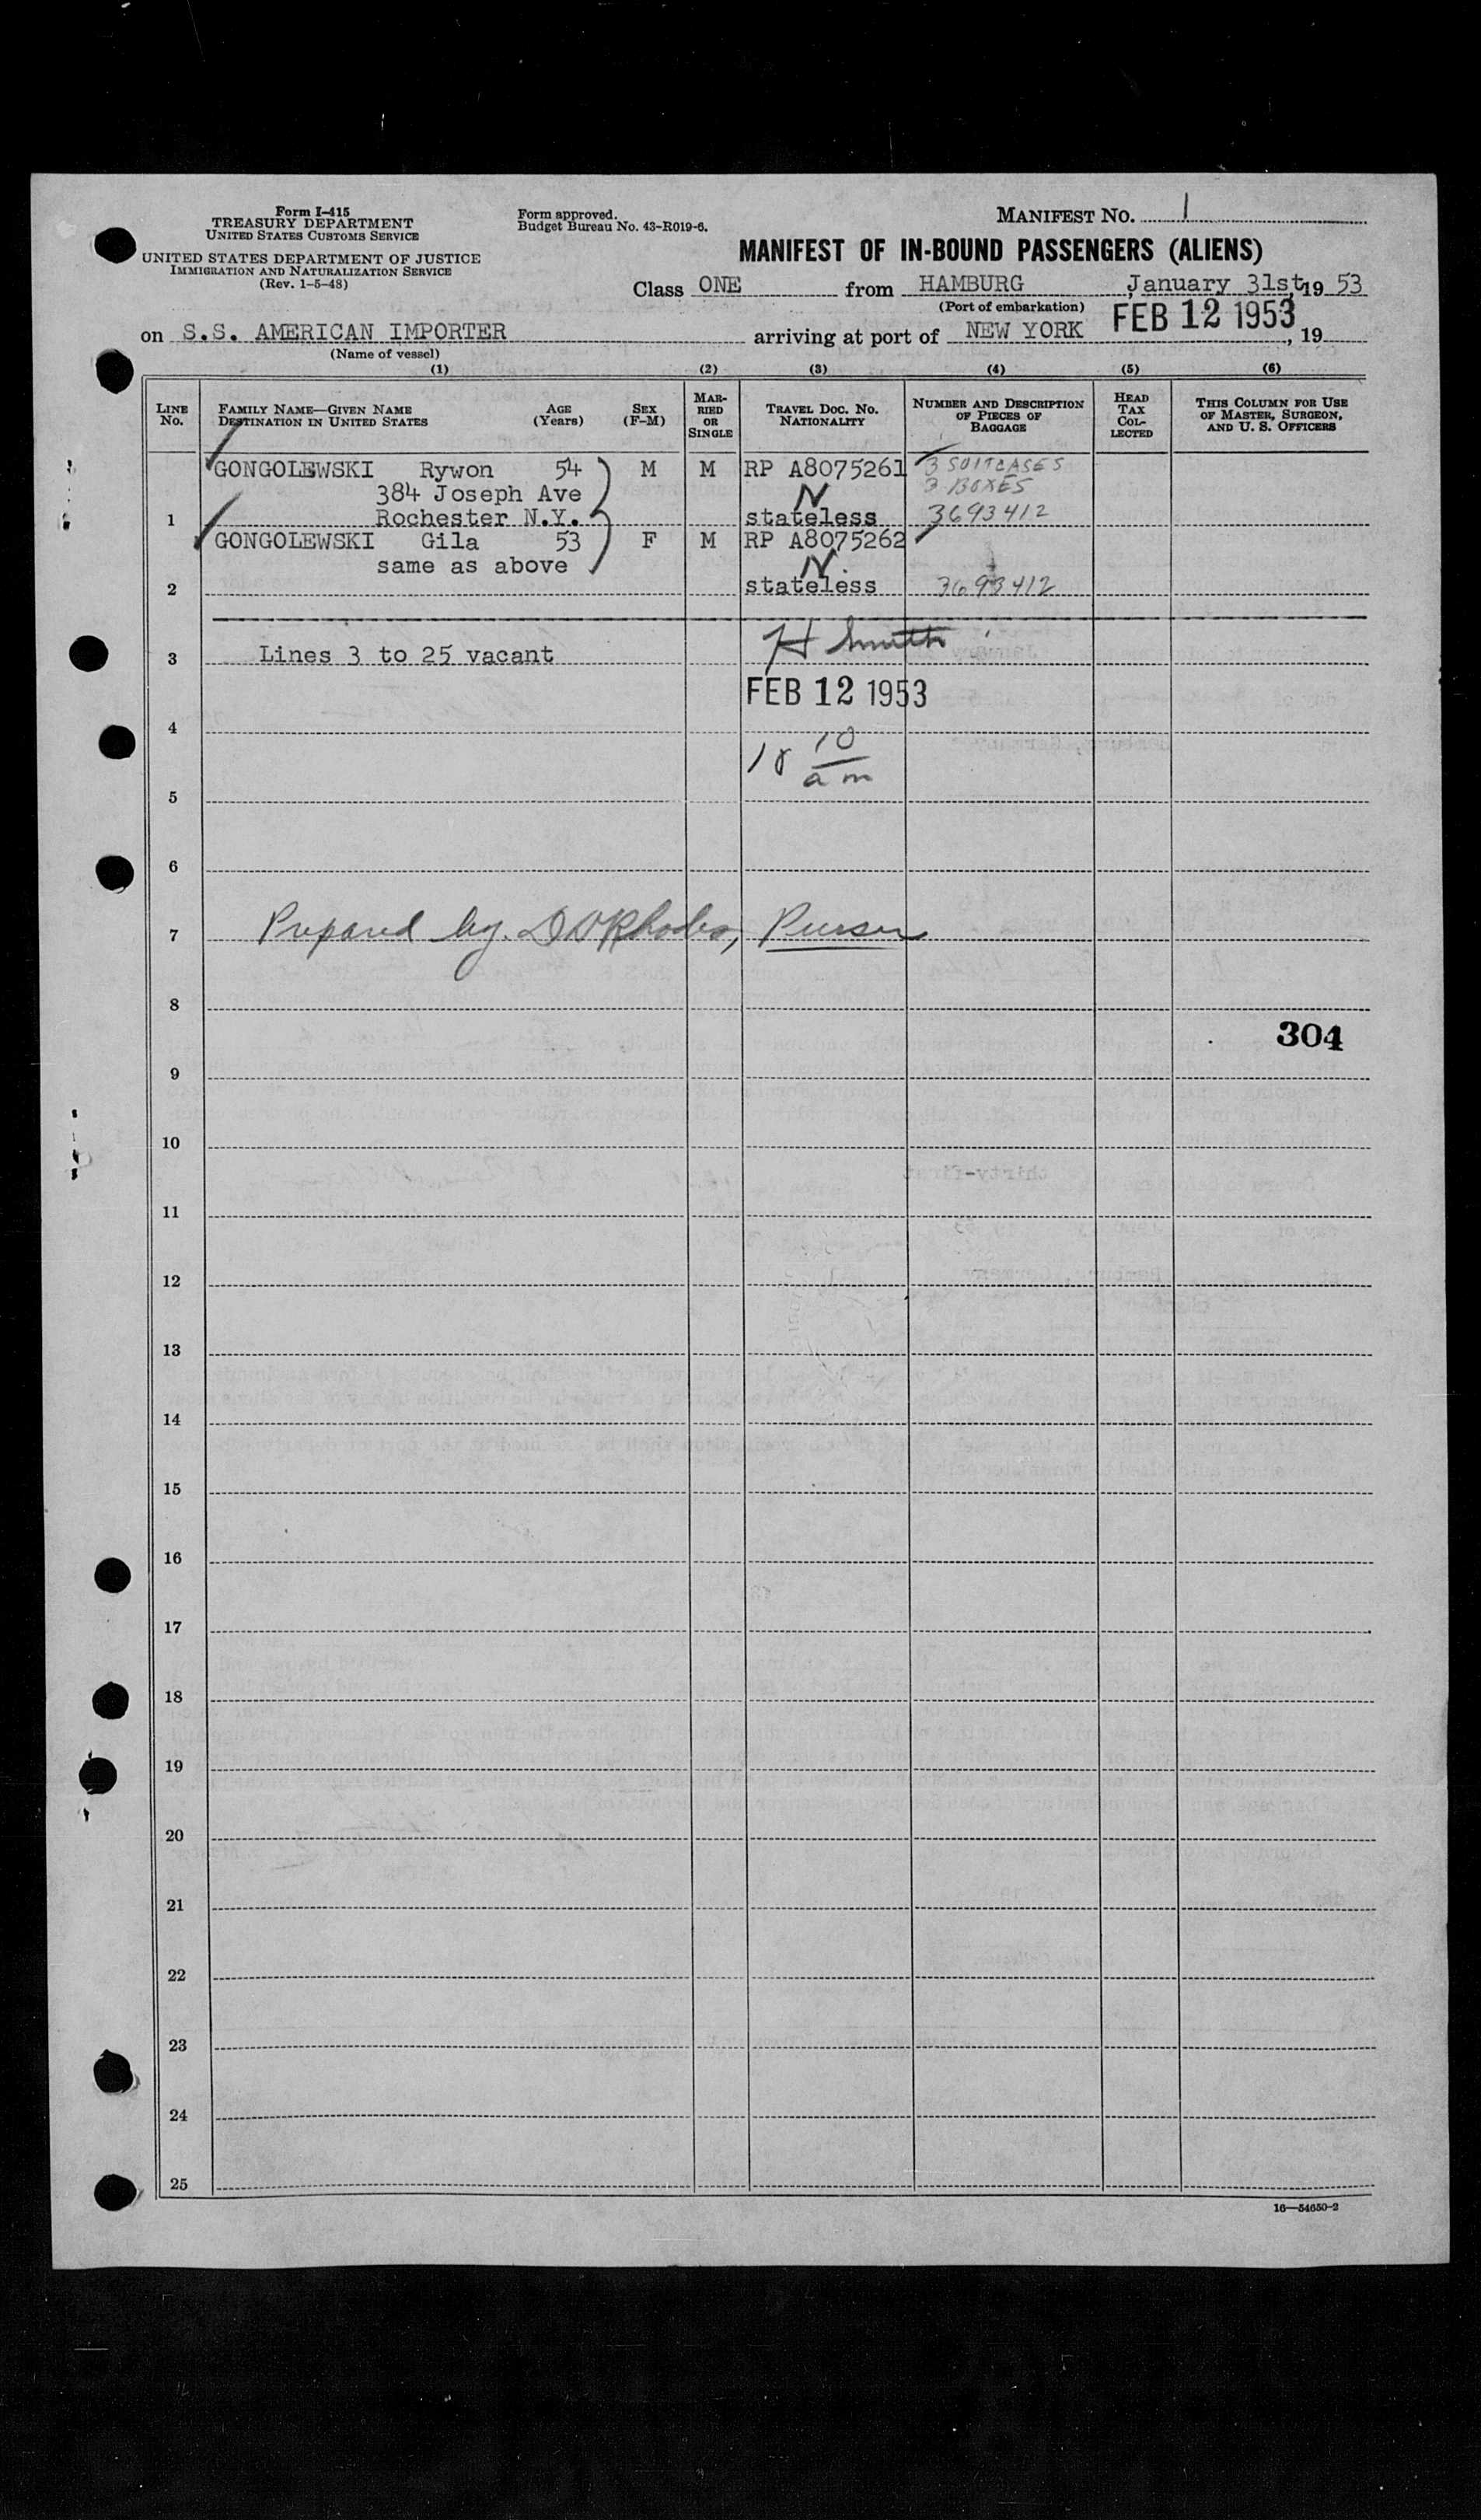 Form I-415
TREASURY DEPARTMENT
UNITED STATES CUSTOMS SERVICE
UNITED STATES DEPARTMENT OF JUSTICE
IMMIGRATION AND NATURALIZATION SERVICE
(Rev. 1-5-48)
Form approved.
Budget Bureau No. 43-R019-6.
MANIFEST NO. 1
MANIFEST OF IN-BOUND PASSENGERS (ALIENS)
Class ONE from HAMBURG, January 31st, 19 53
(Port of embarkation)
on S.S. AMERICAN IMPORTER arriving at port of NEW YORK FEB 12 1953, 19
(Name of vessel)
(1) (2) (3) (4) (5) (6)
LINE No. FAMILY NAME—GIVEN NAME DESTINATION IN UNITED STATES AGE (Years) SEX (F-M) MARRIED OR SINGLE TRAVEL DOC. NO. NATIONALITY NUMBER AND DESCRIPTION OF PIECES OF BAGGAGE HEAD TAX COLLECTED THIS COLUMN FOR USE OF MASTER, SURGEON, AND U. S. OFFICERS
GONGOLEWSKI Rywon 54 M M RP A8075261 3 SUITCASES
384 Joseph Ave N 3 BOXES
1 Rochester N.Y. stateless 3693412
GONGOLEWSKI Gila 53 F M RP A8075262
same as above N.
2 stateless 3693412
3 Lines 3 to 25 vacant H Smith
FEB 12 1953
4
10
am
5
6
7 Prepared by. Rhodes, Purser
8
304
9
10
11
12
13
14
15
16
17
18
19
20
21
22
23
24
25
16—54650-2